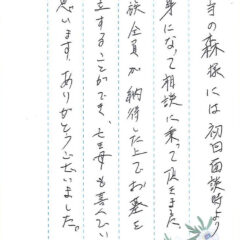 当の森様には初回面談時より
身になって相談に乗って頂きました。
族全員が納得した上でお墓を
立することができ、亡き母も喜んでい
思います。ありがとうございました。